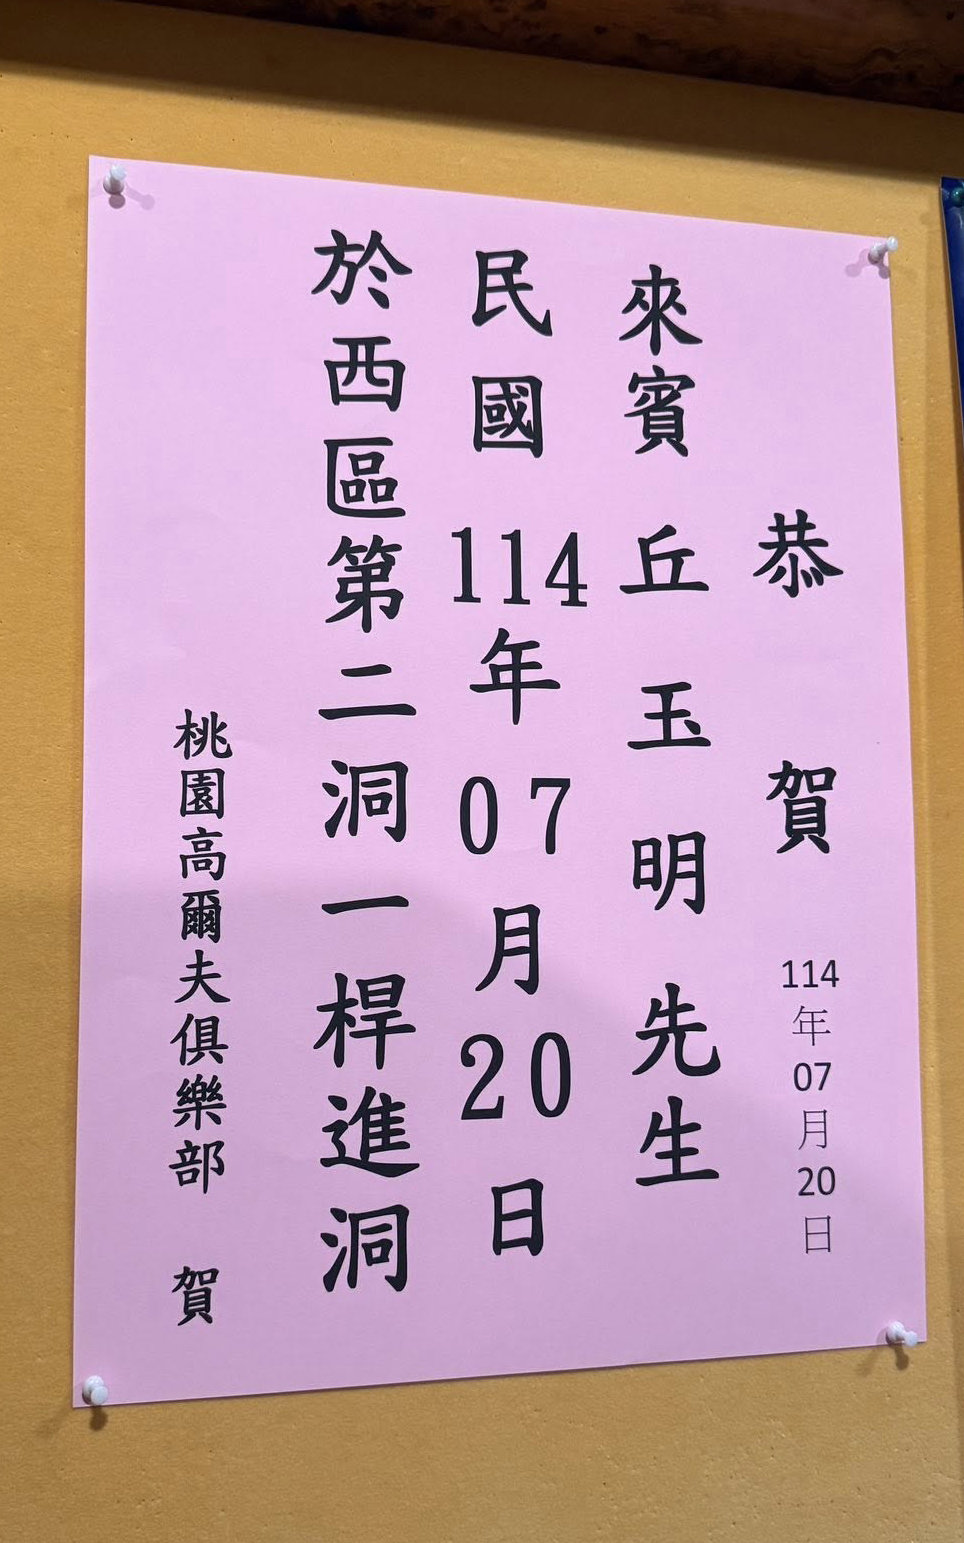 恭賀 114年07月20日
來賓 丘玉明先生
民國114年07月20日
於西區第二洞一桿進洞
桃園高爾夫俱樂部 賀